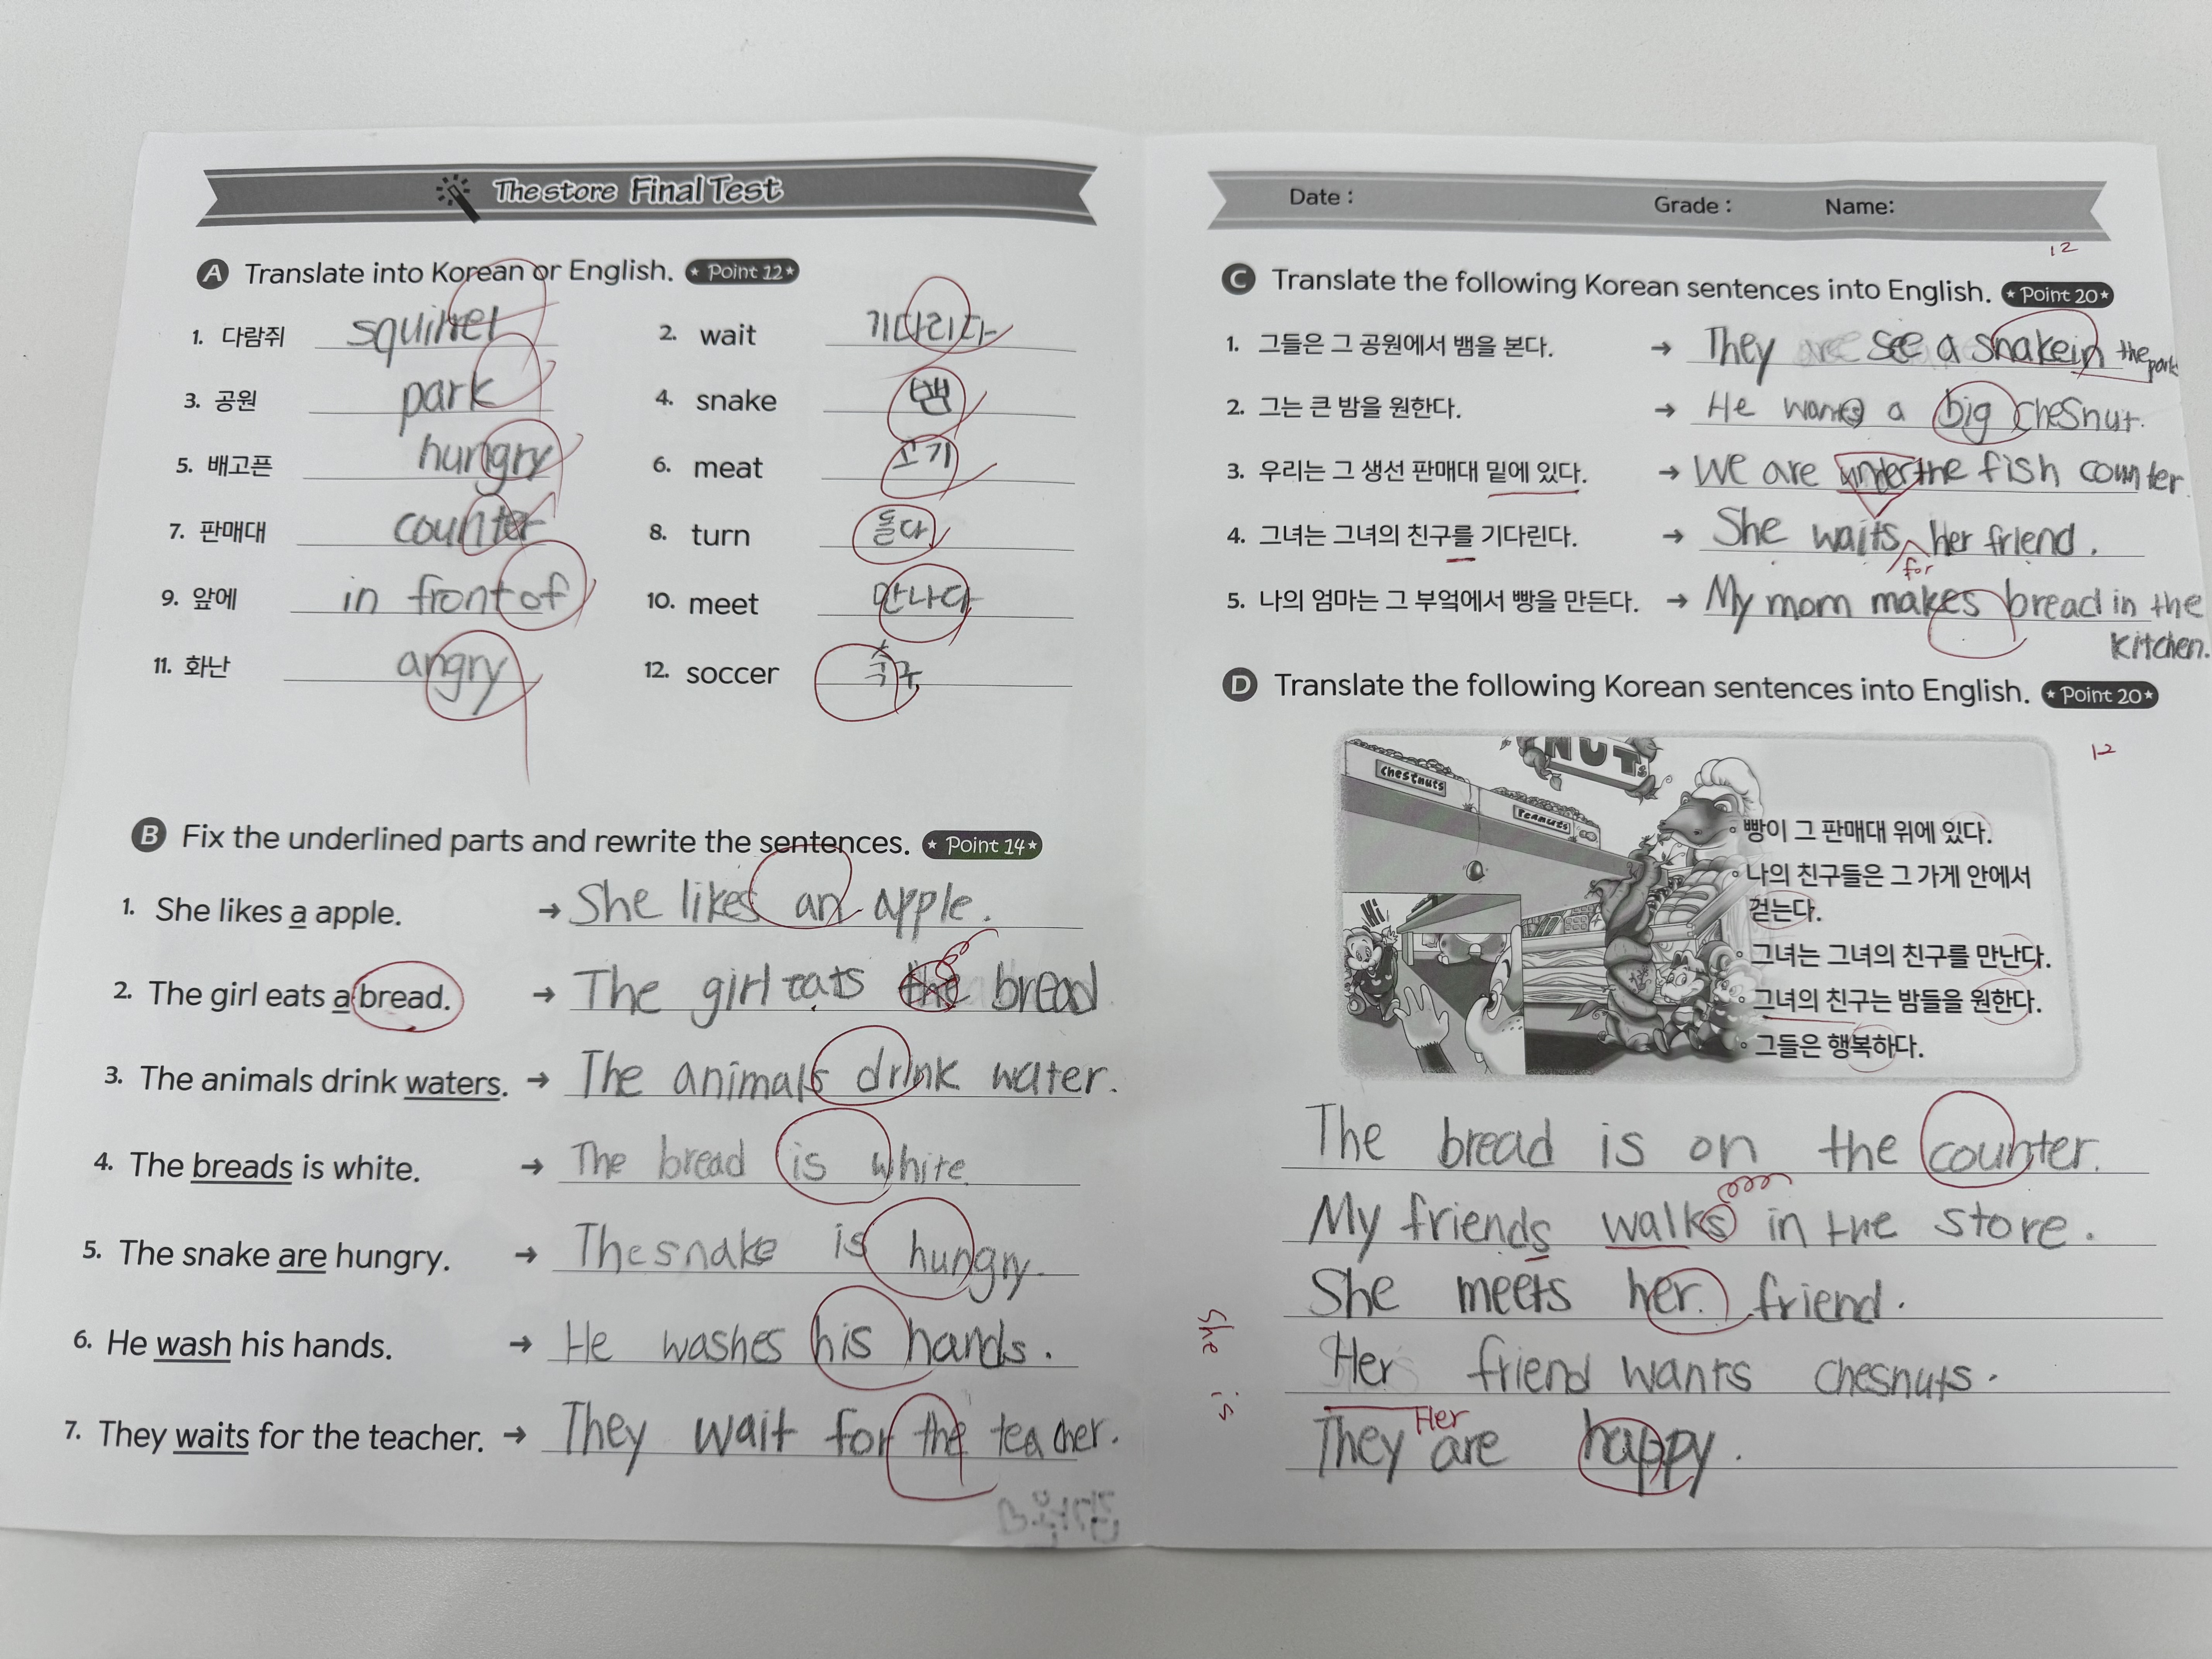 The store Final Test
A Translate into Korean or English. ★ Point 12 ★
1. 다람쥐 squirrel 2. wait 기다리다
3. 공원 park 4. snake 뱀
5. 배고픈 hungry 6. meat 고기
7. 판매대 counter 8. turn 돌다
9. 앞에 in front of 10. meet 만나다
11. 화난 angry 12. soccer 축구
B Fix the underlined parts and rewrite the sentences. ★ Point 14 ★
1. She likes a apple. → She likes an apple.
2. The girl eats a bread. → The girl eats the bread
3. The animals drink waters. → The animals drink water.
4. The breads is white. → The bread is white.
5. The snake are hungry. → The snake is hungry.
6. He wash his hands. → He washes his hands.
7. They waits for the teacher. → They wait for the teacher.
Date : Grade : Name:
12
C Translate the following Korean sentences into English. ★ Point 20 ★
1. 그들은 그 공원에서 뱀을 본다. → They see a snake in the park
2. 그는 큰 밤을 원한다. → He wants a big chesnut.
3. 우리는 그 생선 판매대 밑에 있다. → We are under the fish counter.
4. 그녀는 그녀의 친구를 기다린다. → She waits her friend.
for
5. 나의 엄마는 그 부엌에서 빵을 만든다. → My mom makes bread in the
kitchen.
D Translate the following Korean sentences into English. ★ Point 20 ★
12
NUTs
Chestnuts
Peanuts
Hi
빵이 그 판매대 위에 있다.
나의 친구들은 그 가게 안에서
걷는다.
그녀는 그녀의 친구를 만난다.
그녀의 친구는 밤들을 원한다.
그들은 행복하다.
The bread is on the counter.
My friends walks in the store.
She meets her friend.
Her friend wants chesnuts.
Her
They are happy.
she is